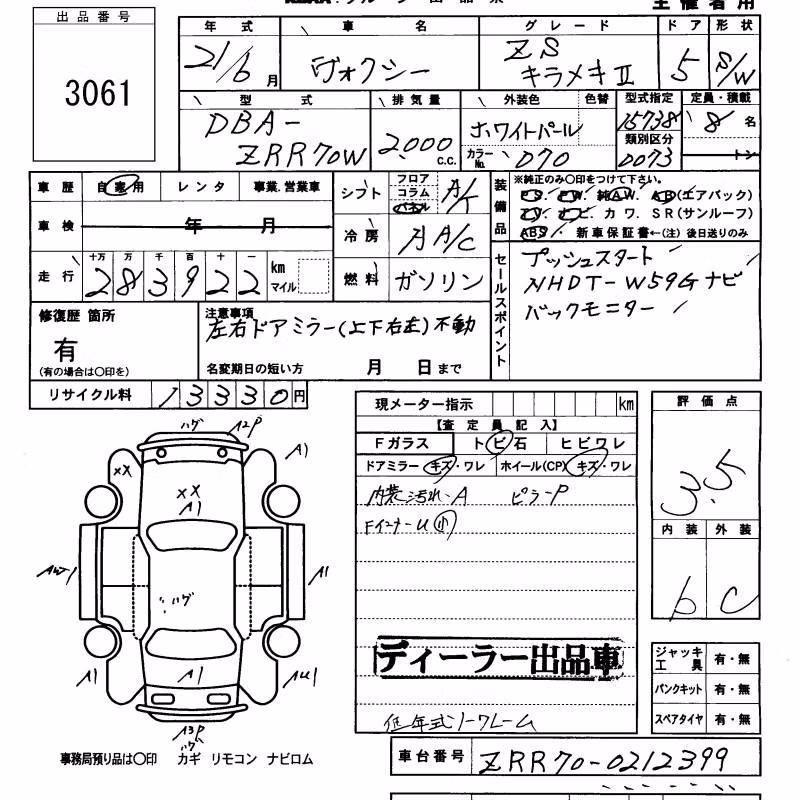 主催者用
出品番号
3061
年式 車名 グレード ドア 形状
21/6月 ヴォクシー ZS キラメキⅡ 5 S/W
型式 排気量 外装色 色替 型式指定 定員・積載
DBA- ZRR70W 2.000 c.c. ホワイトパール 15738 8名
カラーNo. 070 類別区分 0073 トン
車歴 自家用 レンタ 事業.営業車
シフト フロア コラム パネル A/T
車検 年 月
冷房 A/C
走行 十万 万 千 百 十 一
283922 km マイル
燃料 ガソリン
装備品
※純正のみ〇印をつけて下さい。
PS. PW. 純AW. AB(エアバック)
TV. ナビ. カワ. SR(サンルーフ)
ABS. 新車保証書←(注) 後日送りのみ
セールスポイント
プッシュスタート
NHDT-W59Gナビ
バックモニター
修復歴 箇所
有
(有の場合は〇印を)
注意事項
左右ドアミラー(上下右左)不動
名変期日の短い方 月 日まで
リサイクル料 13330円
現メーター指示 km
【査定員記入】
Fガラス トビ石 ヒビワレ
ドアミラー キズ・ワレ ホイール(CP) キズ・ワレ
内装汚れ・A ピラーP
FインナーU(小)
ディーラー出品車
低年式ノークレーム
評価点
3.5
内装 外装
b C
ジャッキ工具 有・無
パンクキット 有・無
スペアタイヤ 有・無
ハゲ A2P
XX A1
XX
A1
AW1 A1
ハゲ
A1 A1 AU1
A3P
ハゲ
事務局預り品は〇印 カギ リモコン ナビロム
車台番号 ZRR70-0212399